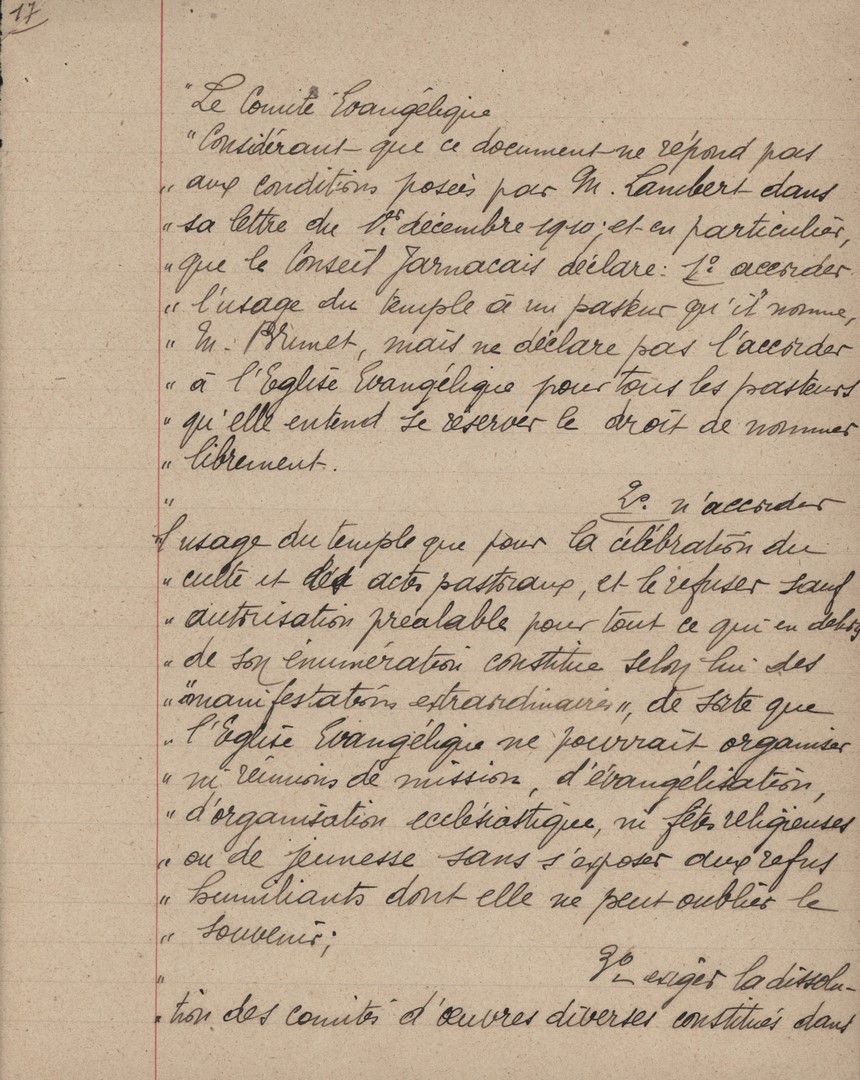 17
"Le Comité Evangélique
"Considérant que ce document ne répond pas
" aux conditions posées par M. Lambert dans
" sa lettre du 1er décembre 1910; et en particulier,
" que le Conseil Jarnacais déclare: 1º accorder
" l'usage du temple à un pasteur qu'il nomme,
" M. Brunet, mais ne déclare pas l'accorder
" à l'Eglise Evangélique pour tous les pasteurs
" qu'elle entend se réserver le droit de nommer
" librement.
" 2º. n'accorder
"l'usage du temple que pour la célébration du
" culte et des actes pastoraux, et le refuser sauf
" autorisation préalable pour tout ce qui en dehors
" de son énumération constitue selon lui des
" "manifestations extraordinaires", de sorte que
" l'Eglise Evangélique ne pourrait organiser
" ni réunions de mission, d'évangélisation,
" d'organisation ecclésiastique, ni fêtes religieuses
" ou de jeunesse sans s'exposer aux refus
" humiliants dont elle ne peut oublier le
" souvenir;
" 3º exiger la dissolu-
" tion des comités d'œuvres diverses constitués dans